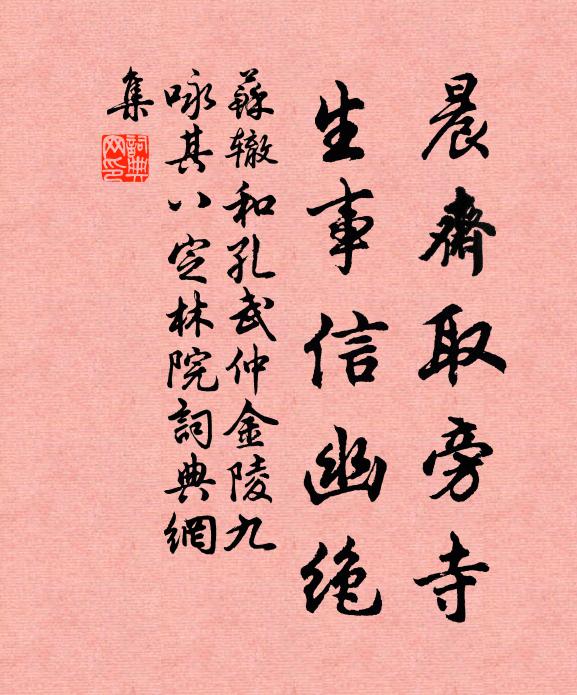 晨齋取旁寺
生事信幽絶
蘇辙和孔武仲金陵九
咏其八定林院詞典網
集
詞典網印